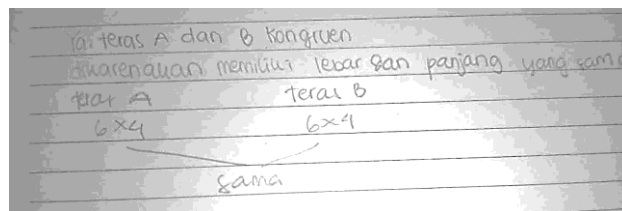 teras A dan B kongruen
dikarenakan memiliki lebar dan panjang yang sama
teras A teras B
6×4 6×4
sama